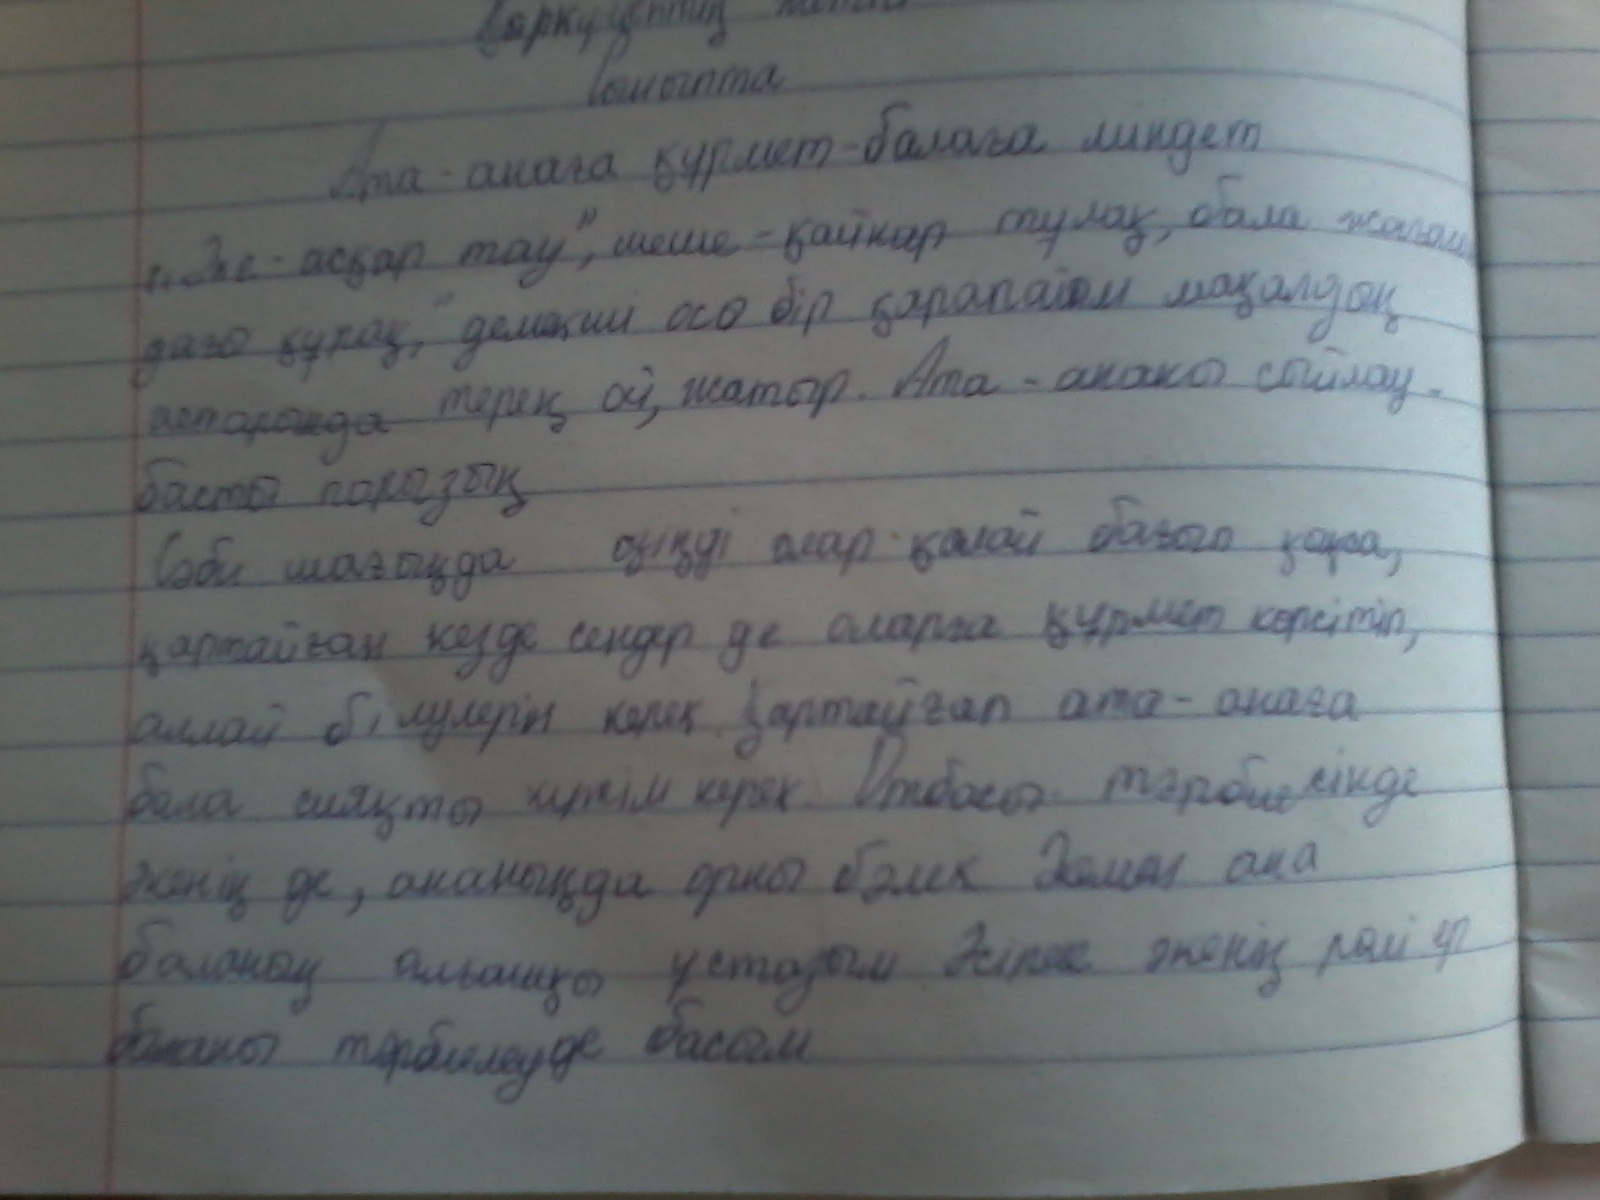 Сыныпта
Ата-анаға құрмет-балаға міндет
"Әке-асқар тау", шеше-қайнар бұлақ, бала жағасын
дағы құрақ," демекші осы бір қарапайым мақалдың
астарында терең ой жатыр. Ата-ананы сыйлау-
басты парызың
Сәби шағыңда өзіңді олар қалай бағып қақса,
қартайған кезде сендер де оларға құрмет көрсетіп,
аялай білулерің керек. Қартайған ата-анаға
бала сияқты күтім керек. Отбасы тәрбиесінде
әкенің де, ананыңда орны бөлек Жалпы ана
баланың алғашқы ұстазы Әсіресе әкенің рөлі ұл
баланы тәрбиелеуде басым